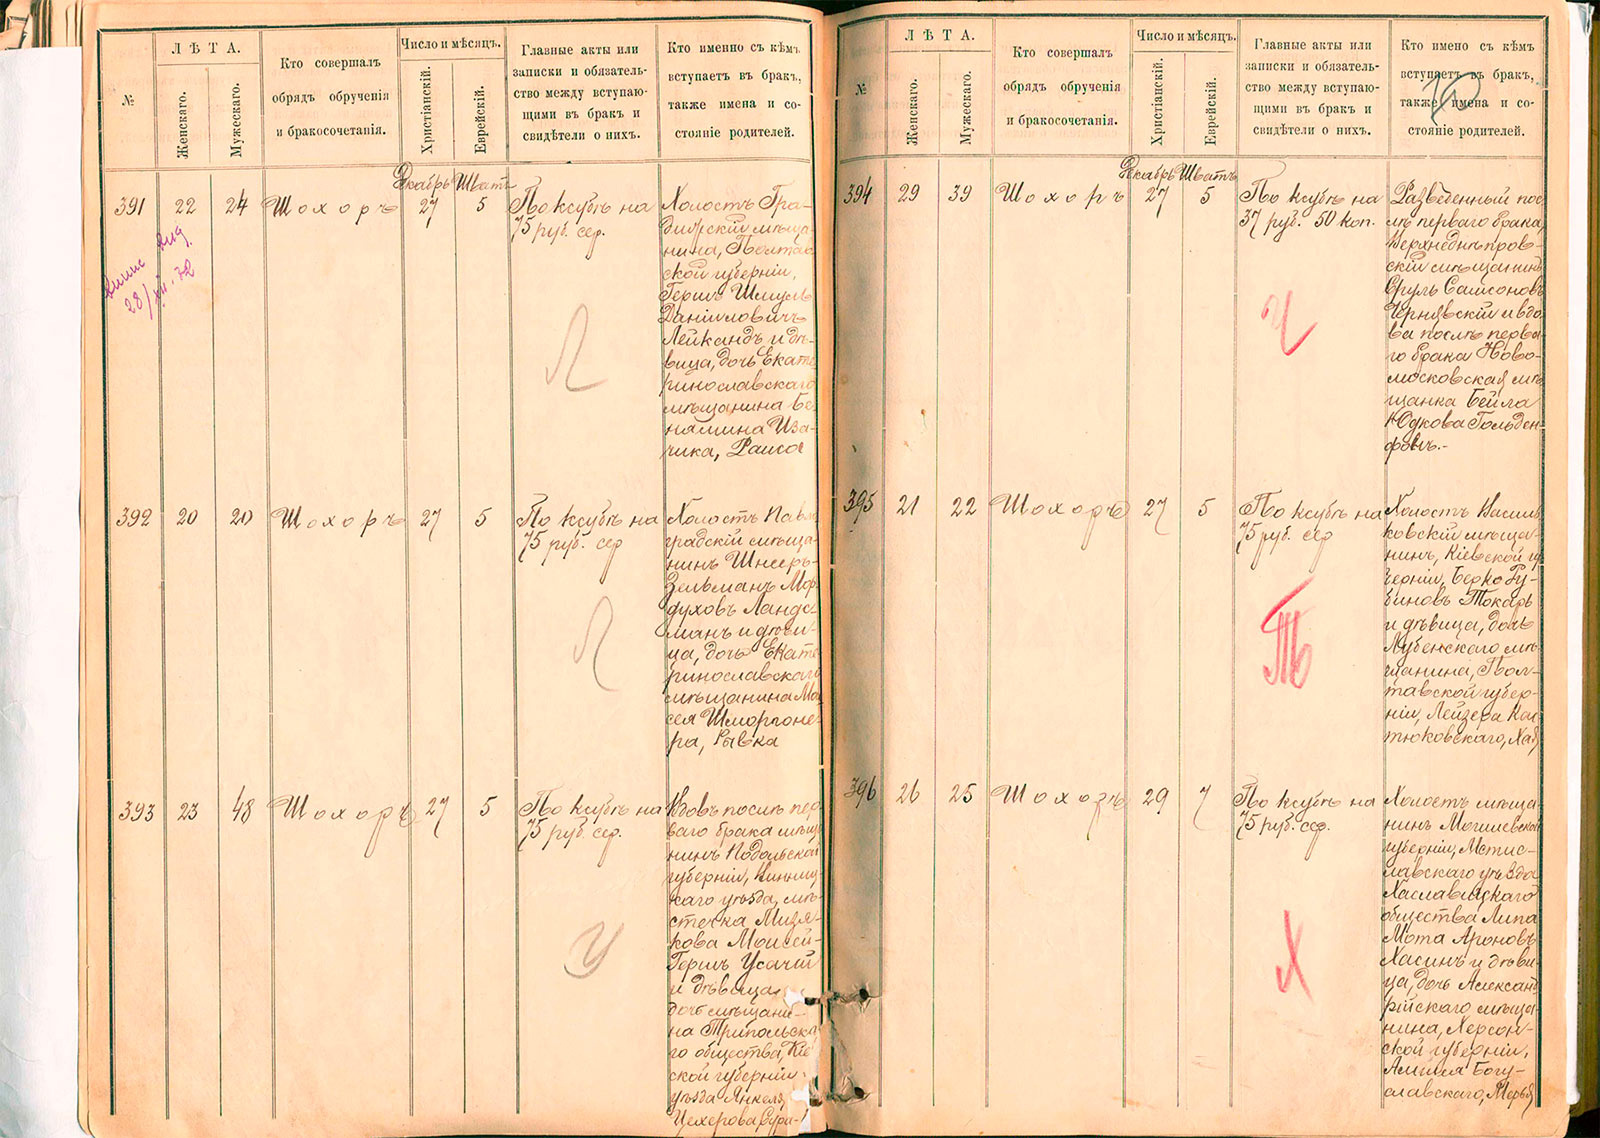 №
ЛѢТА.
Женскаго.
Мужескаго.
Кто совершалъ
обрядъ обрученія
и бракосочетанія.
Число и мѣсяцъ.
Христіанскій.
Еврейскій.
Главные акты или
записки и обязатель-
ство между вступаю-
щими въ бракъ и
свидѣтели о нихъ.
Кто именно съ кѣмъ
вступаетъ въ бракъ,
также имена и со-
стояніе родителей.
Декабрь Шватъ
391 22 24 Шохоръ 27 5
По ксубѣ на
75 руб. сер.
Холостъ Гра-
дижскій мѣща-
нинъ, Полтав
ской губерніи,
Гершъ Шмуль
Даніиловичъ
Лейкандъ и дѣ-
вица, дочь Екате
ринославскаго
мѣщанина Бе
нямина Иза-
чика, Раиса
28/XII-72
Л
392 20 20 Шохоръ 27 5
По ксубѣ на
75 руб. сер
Холостъ Павло
градскій мѣща-
нинъ Шнееръ-
Зельманъ Мор
духовъ Ландс-
манъ и дѣви-
ца, дочь Екате
ринославскаго
мѣщанина Мои
сея Шморгоне-
ра, Рывка
Л
393 23 48 Шохоръ 27 5
По ксубѣ на
75 руб. сер.
Вдовъ послѣ пер
ваго брака мѣща
нинъ Подольской
губерніи, Винниц
каго уѣзда, мѣ-
стечка Мизя-
кова Моисей-
Гершъ Усачій
и дѣвица
дочь мѣщани-
на Трипольска
го общества, Кіе
ской губерніи,
уѣзда Янкеля
Цехерова, Сура-
У
№
ЛѢТА.
Женскаго.
Мужескаго.
Кто совершалъ
обрядъ обрученія
и бракосочетанія.
Число и мѣсяцъ.
Христіанскій.
Еврейскій.
Главные акты или
записки и обязатель-
ство между вступаю-
щими въ бракъ и
свидѣтели о нихъ.
Кто имено съ кѣмъ
вступаетъ въ бракъ,
также имена и со-
стояніе родителей.
Декабрь Шватъ
394 29 39 Шохоръ 27 5
По ксубѣ на
37 руб. 50 коп.
Разведенный пос
лѣ перваго брака,
Верхнеднѣпров-
скій мѣщанинъ
Сруль Самсоновъ
Чернявскій и вдо
ва послѣ перва
го брака Ново-
московская мѣ
щанка Бейла
Юдкова Гольден
фовъ.-
Ч
395 21 22 Шохоръ 27 5
По ксубѣ на
75 руб. сер
Холостъ Василь
ковскій мѣща-
нинъ, Кіевской гу
берніи, Берко Ру-
биновъ Токарь
и дѣвица, дочь
Лубенскаго мѣ
щанина, Пол-
тавской губер-
ніи, Лейзера Кос
тюковскаго, Хая
Т
396 26 25 Шохоръ 29 7
По ксубѣ на
75 руб. сер.
Холостъ мѣща-
нинъ Могилевской
губерніи, Мстис-
лавскаго уѣзда
Хаславичскаго
общества Липа
Мота Ароновъ
Хасинъ и дѣви
ца, дочь Александ
рійскаго мѣща
нина, Херсон-
ской губерніи,
Амшея Богу-
славскаго, Мерья
Х